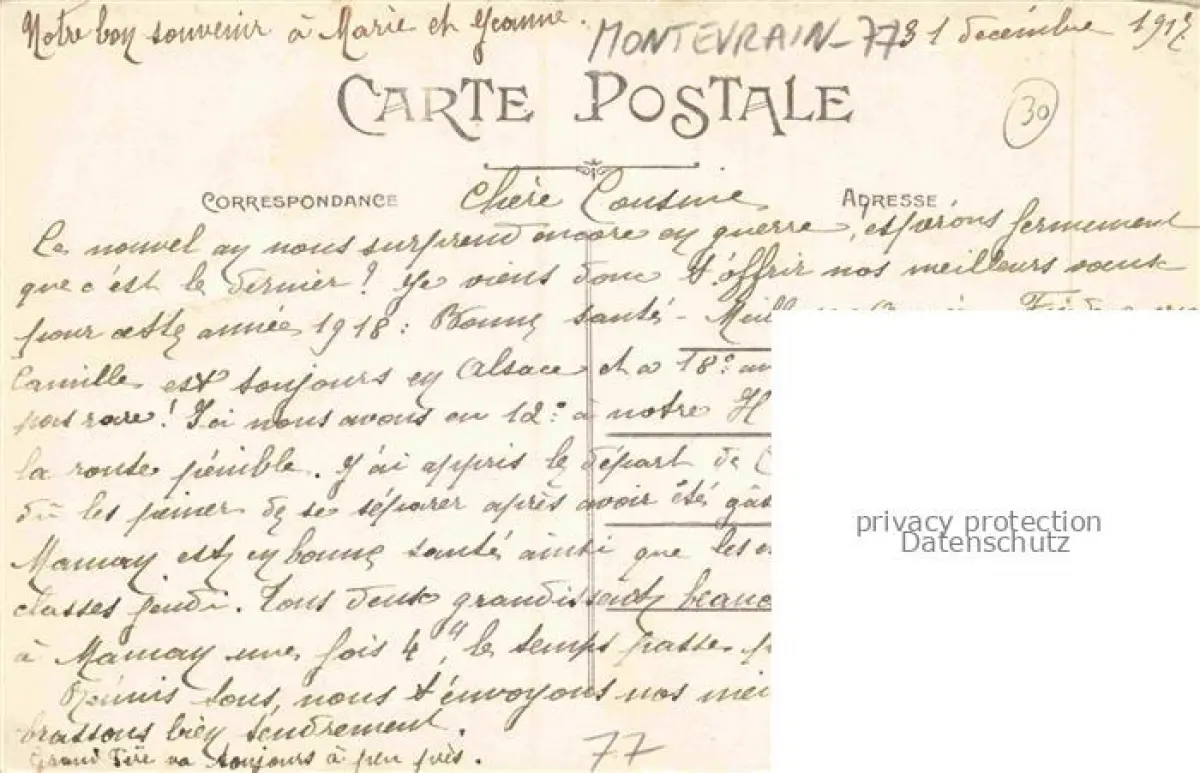 Notre bon souvenir à Marie et Jeanne.
MONTEVRAIN - 77
31 décembre 1917
CARTE POSTALE
30
CORRESPONDANCE
Chère Cousine
ADRESSE
Le nouvel an nous surprend encore en guerre, espérons fermement
que c'est le dernier ! Je viens donc t'offrir nos meilleurs vœux
pour cette année 1918 : Bonne santé -
Camille est toujours en Alsace et a 18°
pas rare ! Ici nous avons eu 12° à notre
la route pénible. J'ai appris le départ de
dû les peiner de se séparer après avoir été
Maman est en bonne santé ainsi que les
classes jeudi. Tous deux grandissent
à Maman une fois 4, le temps passe
Réunis tous, nous t'envoyons nos
brassons bien tendrement.
Grand Père va toujours à peu près.
77
privacy protection
Datenschutz